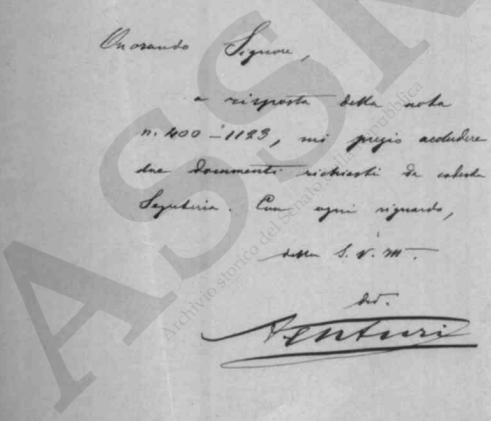 Onorando Signore,
a risposta della nota
n. 400-1123, mi pregio accludere
due documenti richiesti da codesta
Segreteria. Con ogni riguardo,
della S. V. Ill.
dev.
Venturi
ASSR
Archivio storico del Senato della Repubblica